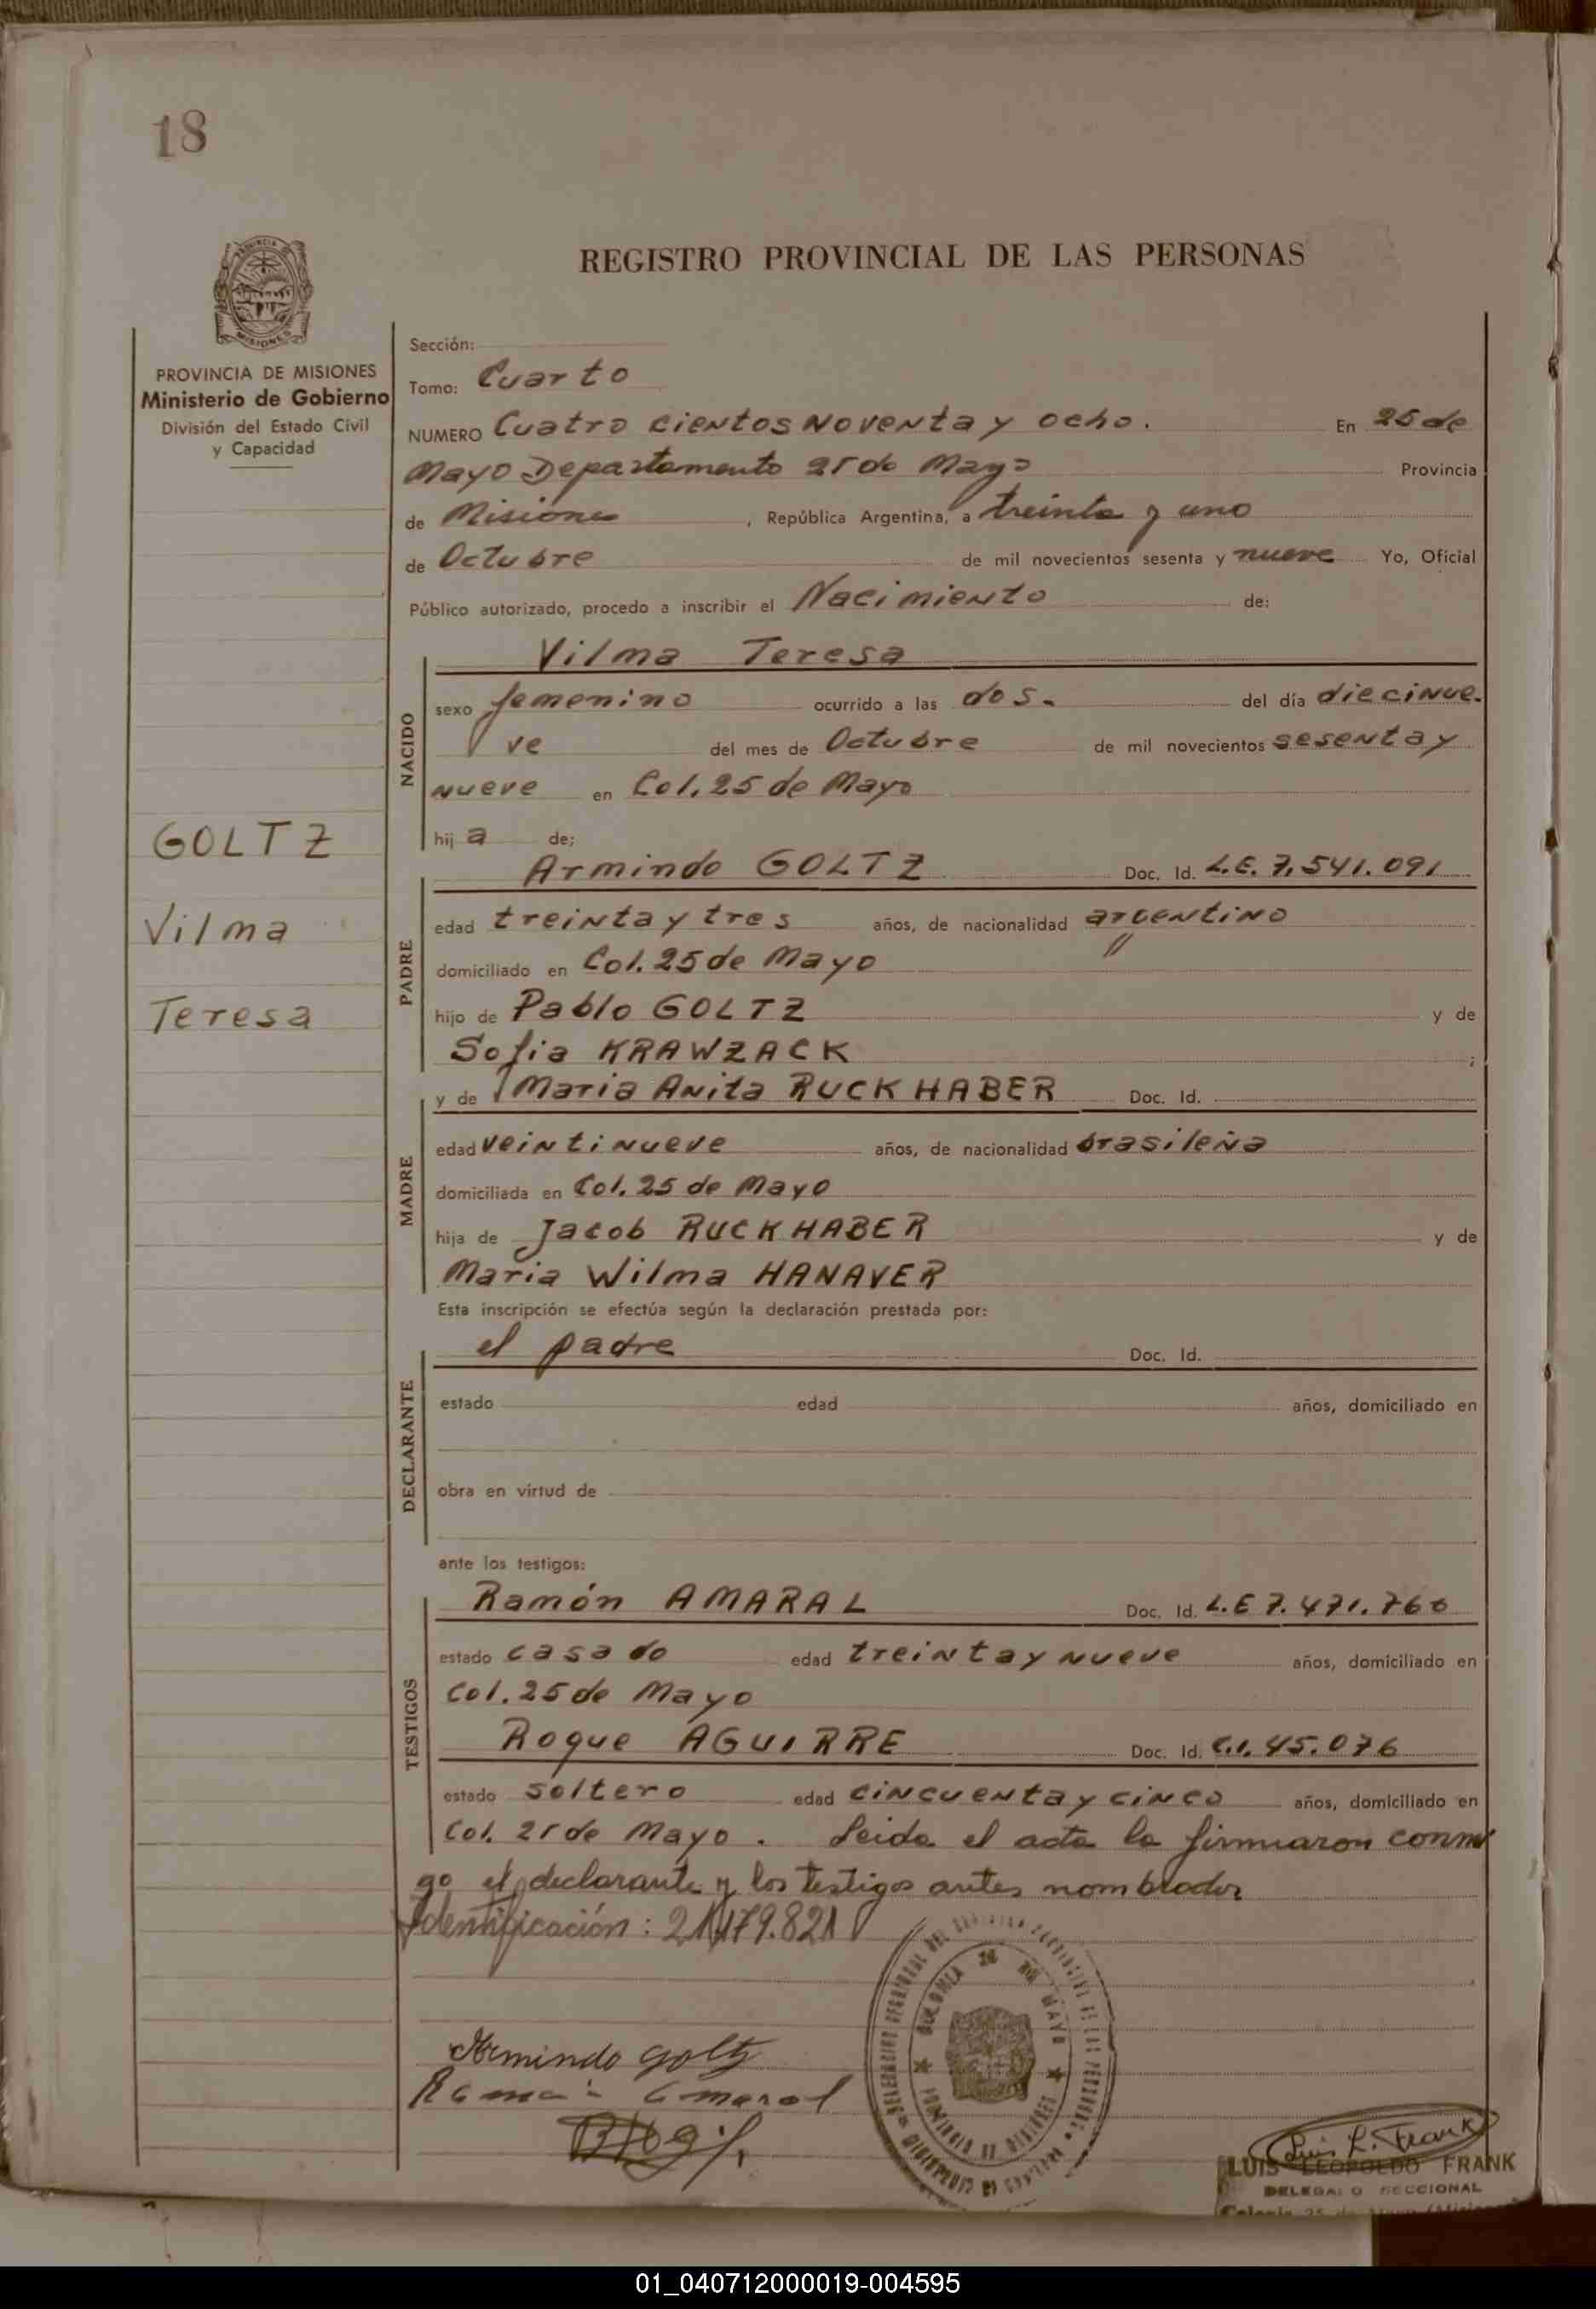 18
REGISTRO PROVINCIAL DE LAS PERSONAS
PROVINCIA DE MISIONES
Ministerio de Gobierno
División del Estado Civil
y Capacidad
GOLTZ
Vilma
Teresa
Sección:
Tomo: Cuarto
NUMERO Cuatro cientos noventa y ocho. En 25 de
Mayo Departamento 25 de Mayo Provincia
de Misiones, República Argentina, a treinta y uno
de Octubre de mil novecientos sesenta y nueve Yo, Oficial
Público autorizado, procedo a inscribir el Nacimiento de:
NACIDO
Vilma Teresa
sexo femenino ocurrido a las dos.- del día diecinue-
ve del mes de Octubre de mil novecientos sesenta y
nueve en Col. 25 de Mayo
hij a de;
PADRE
Armindo GOLTZ Doc. Id. L.E. 7.541.091
edad treinta y tres años, de nacionalidad argentino
domiciliado en Col. 25 de Mayo
hijo de Pablo GOLTZ y de
Sofia KRAWZACK ;
MADRE
y de Maria Anita RUCKHABER Doc. Id.
edad veintinueve años, de nacionalidad brasileña
domiciliada en Col. 25 de Mayo
hija de Jacob RUCKHABER y de
Maria Wilma HANAVER
Esta inscripción se efectúa según la declaración prestada por:
DECLARANTE
el padre Doc. Id.
estado edad años, domiciliado en
obra en virtud de
ante los testigos:
TESTIGOS
Ramón AMARAL Doc. Id. L.E 7.471.760
estado casado edad treinta y nueve años, domiciliado en
Col. 25 de Mayo
Roque AGUIRRE Doc. Id. C.I. 45.076
estado soltero edad cincuenta y cinco años, domiciliado en
Col. 25 de Mayo. Leida el acta la firmaron conmi
go el declarante y los testigos antes nombrados
Identificación: 21.179.821
Armindo Goltz
Ramon Amaral
COLONIA 25 DE MAYO
PROVINCIA DE MISIONES
Luis L. Frank
LUIS LEOPOLDO FRANK
DELEGADO SECCIONAL
01_040712000019-004595